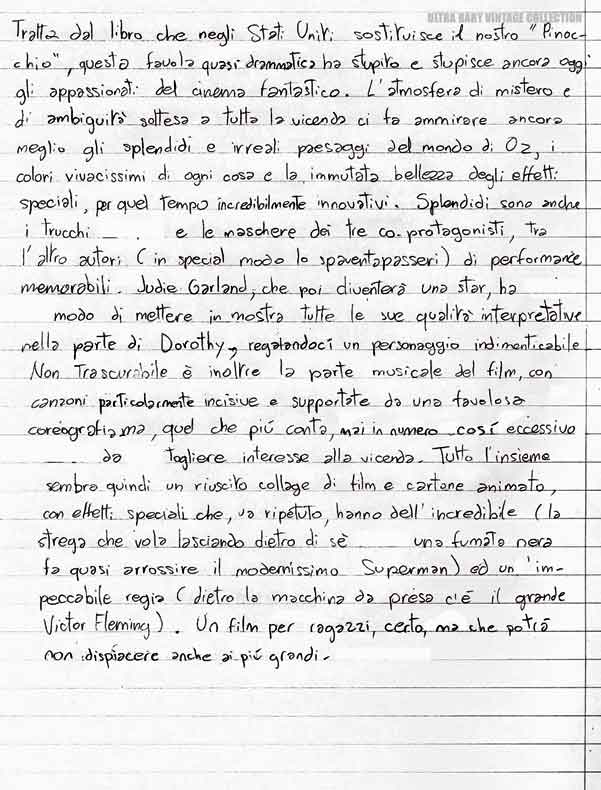 ULTRA RARY VINTAGE COLLECTION
Tratta dal libro che negli Stati Uniti sostituisce il nostro "Pinoc-
chio", questa favola quasi drammatica ha stupito e stupisce ancora oggi
gli appassionati del cinema fantastico. L'atmosfera di mistero e
di ambiguità sottesa a tutta la vicenda ci fa ammirare ancora
meglio gli splendidi e irreali paesaggi del mondo di Oz, i
colori vivacissimi di ogni cosa e la immutata bellezza degli effetti
speciali, per quel tempo incredibilmente innovativi. Splendidi sono anche
i trucchi e le maschere dei tre co-protagonisti, tra
l'altro autori (in special modo lo spaventapasseri) di performance
memorabili. Judie Garland, che poi diventerà una star, ha
modo di mettere in mostra tutte le sue qualità interpretative
nella parte di Dorothy, regalandoci un personaggio indimenticabile
Non Trascurabile è inoltre la parte musicale del film, con
canzoni particolarmente incisive e supportate da una favolosa
coreografia, ma, quel che più conta, mai in numero così eccessivo
da togliere interesse alla vicenda. Tutto l'insieme
sembra quindi un riuscito collage di film e cartone animato,
con effetti speciali che, va ripetuto, hanno dell'incredibile (la
strega che vola lasciando dietro di sè una fumata nera
fa quasi arrossire il modernissimo Superman) ed un'im-
peccabile regia (dietro la macchina da presa c'é il grande
Victor Fleming). Un film per ragazzi, certo, ma che potrà
non dispiacere anche ai più grandi.